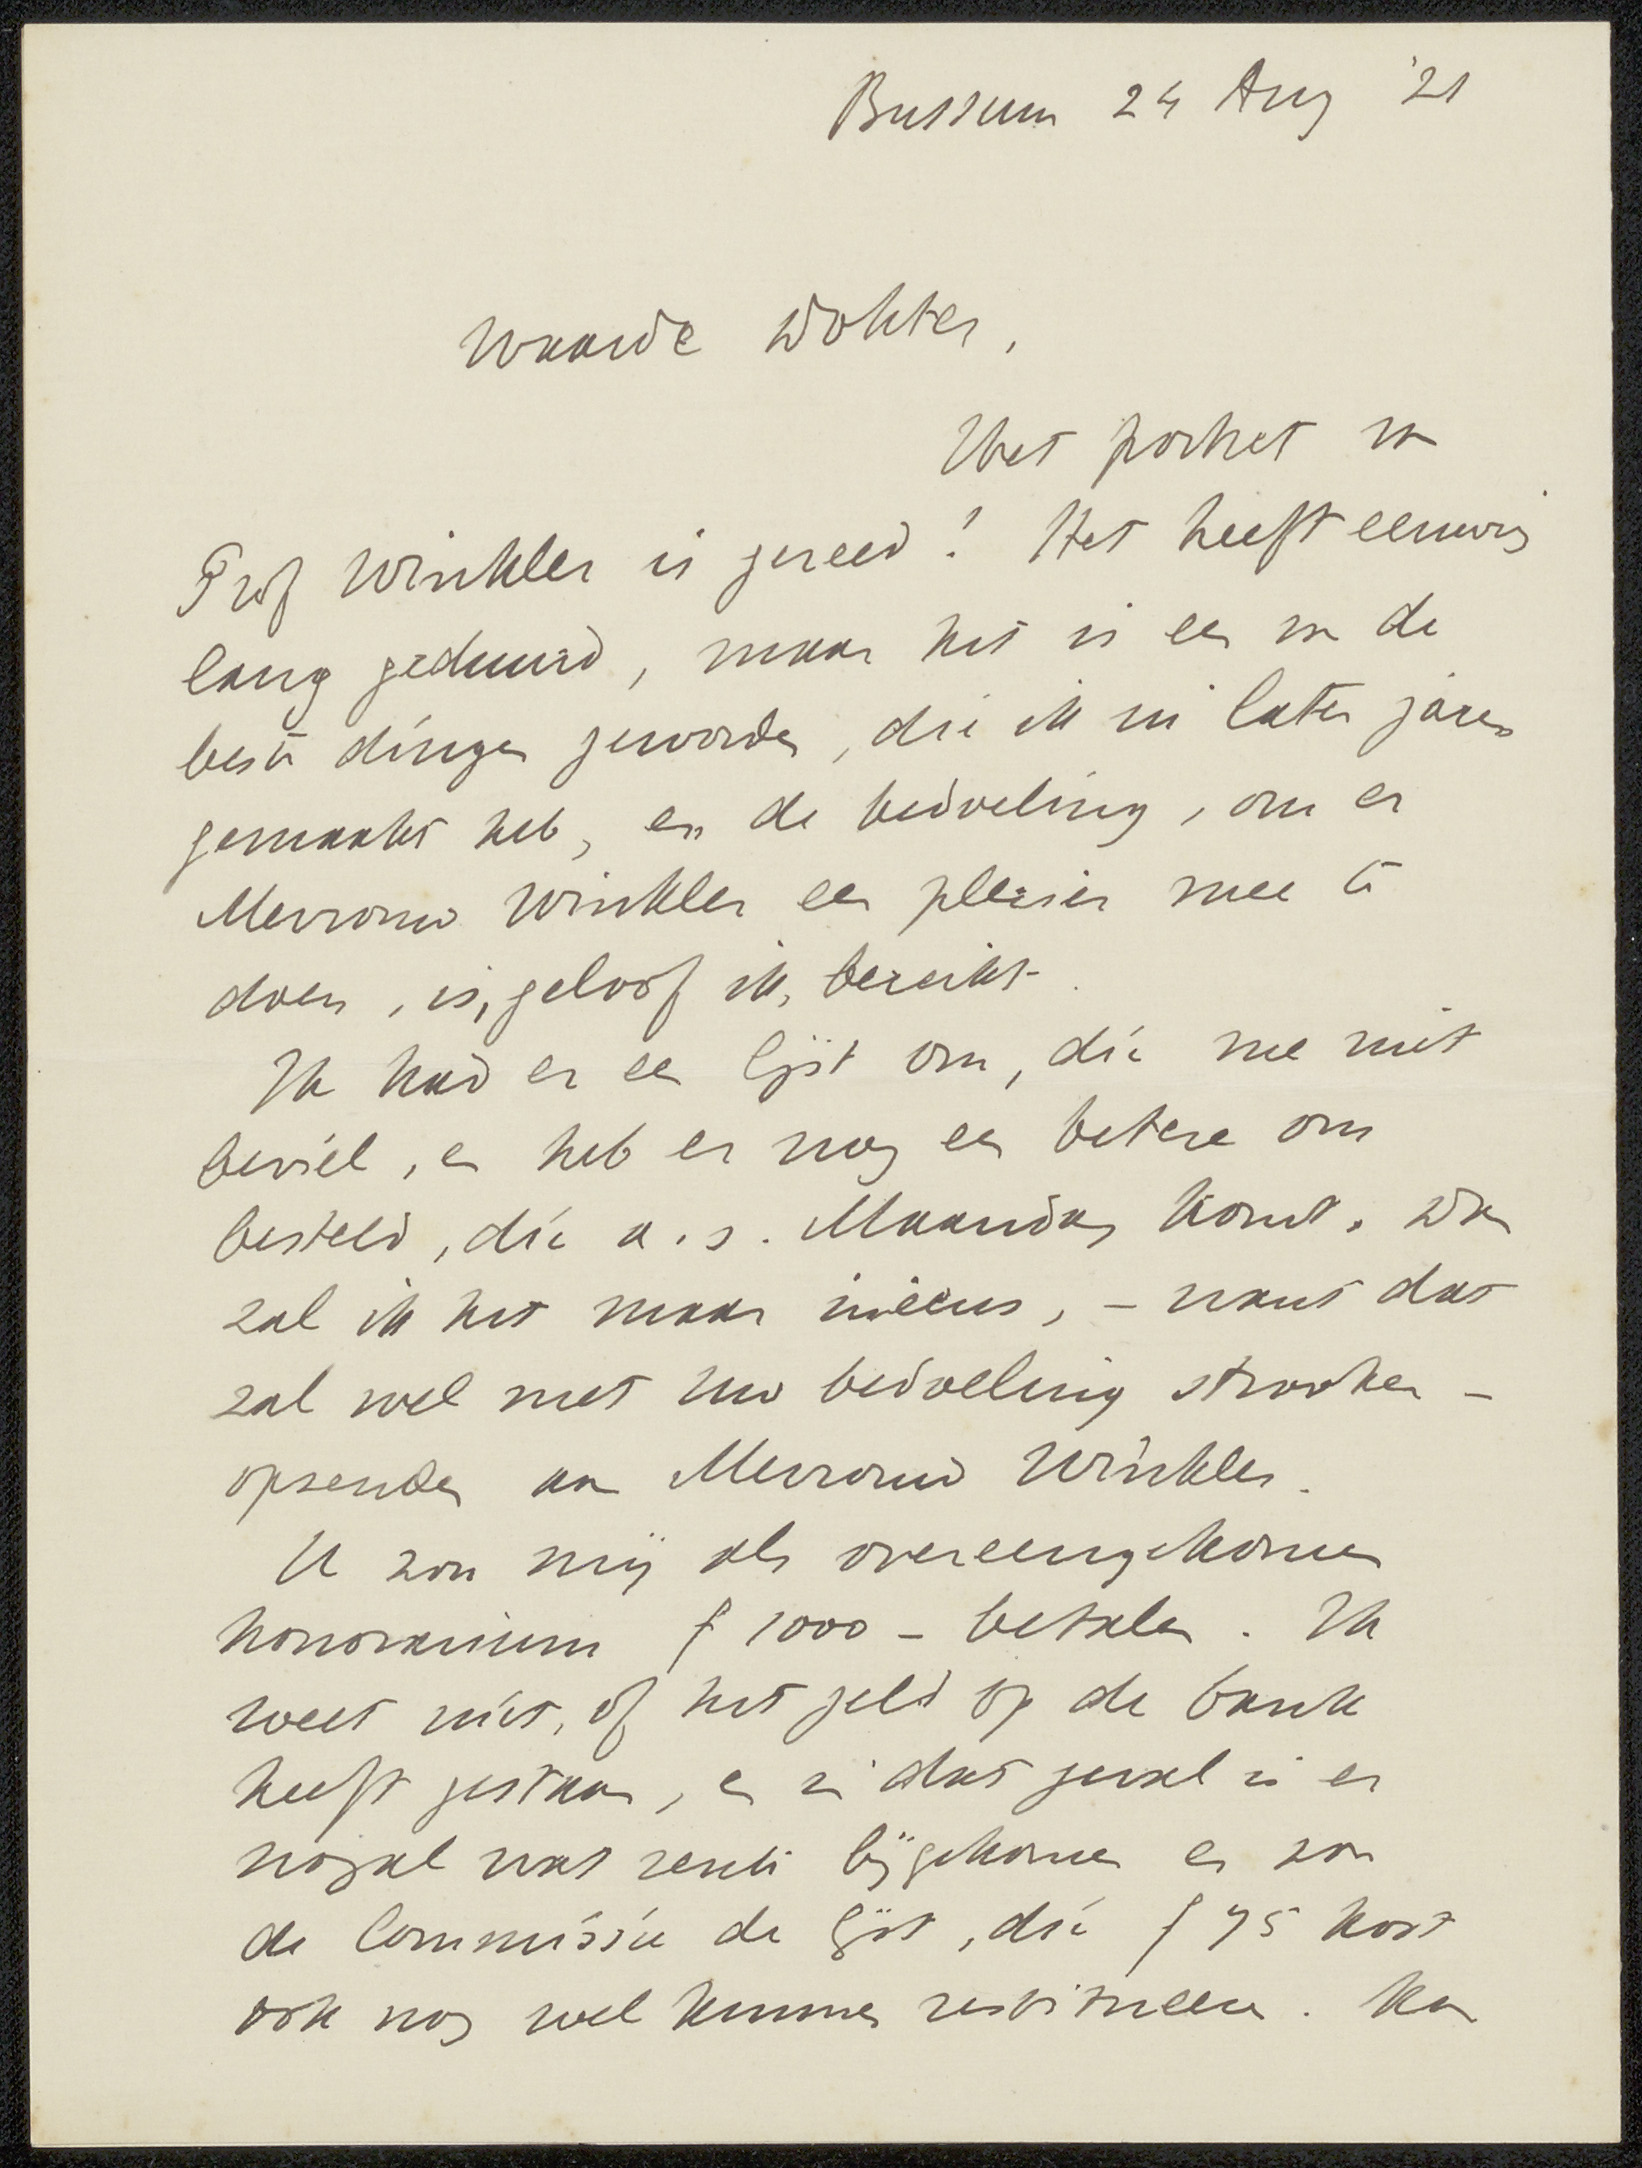 Bussum 24 Aug '21
Waarde Dokter,
Het portret van
Prof Winkler is gereed! Het heeft eeuwig
lang geduurd, maar het is een van de
beste dingen geworden, die ik in later jaren
gemaakt heb, en de bedoeling, om er
Mevrouw Winkler een plezier mee te
doen, is, geloof ik, bereikt.
Ik had er een lijst om, die me niet
beviel, en heb er nog een betere om
besteld, die a.s. Maandag komt. Dan
zal ik het maar ineens, – want dat
zal wel met Uw bedoeling strooken –
opzenden aan Mevrouw Winkler.
U zou mij als overeengekomen
honorarium f 1000 – betalen. Ik
weet niet, of het geld op de bank
heeft gestaan, en in dat geval is er
nogal wat rente bijgekomen en zou
de Commissie de lijst, die f 75 kost
ook nog wel kunnen restitueeren. Kan